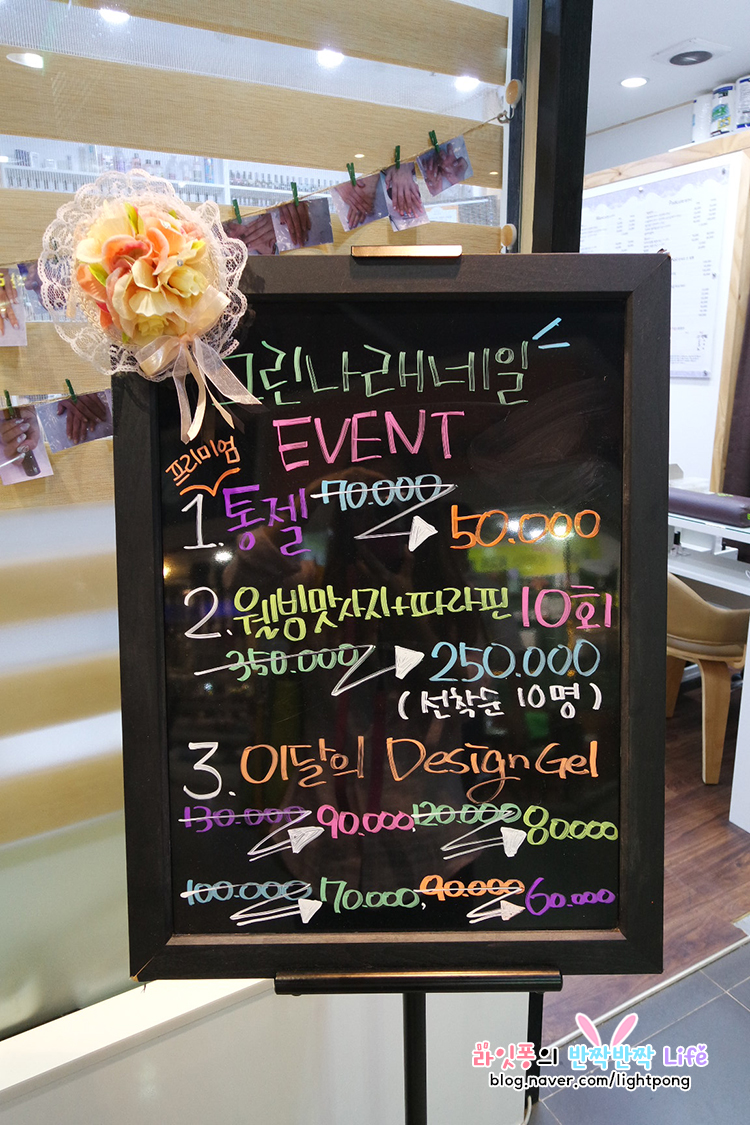 그린나래네일
EVENT
프리미엄
1. 통젤 70.000 50.000
2. 웰빙맛사지+파라핀 10회
350.000 250.000
(선착순 10명)
3. 이달의 Design Gel
130.000 90.000, 120.000 80.000
100.000 70.000, 90.000 60.000
라잇퐁의 반짝반짝 Life
blog.naver.com/lightpong